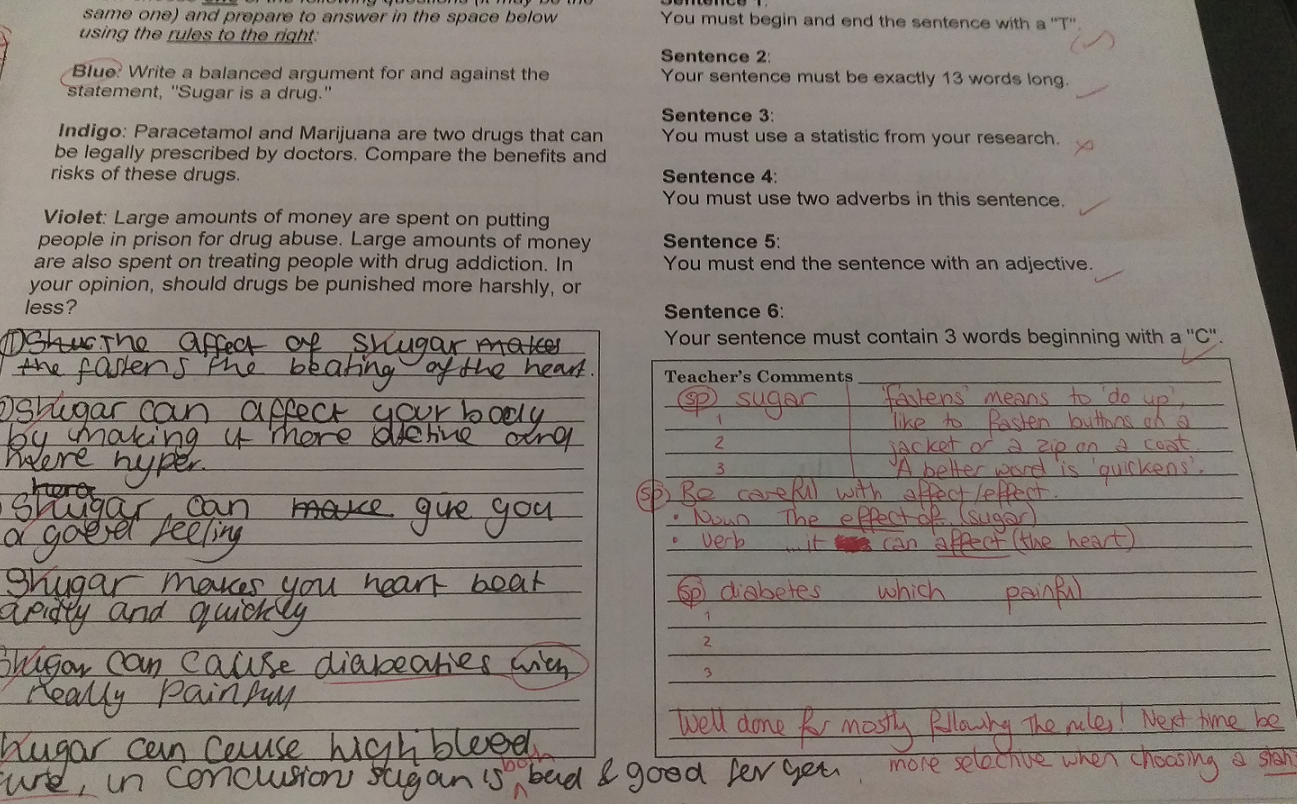 same one) and prepare to answer in the space below
using the rules to the right:
Blue: Write a balanced argument for and against the
statement, "Sugar is a drug."
Indigo: Paracetamol and Marijuana are two drugs that can
be legally prescribed by doctors. Compare the benefits and
risks of these drugs.
Violet: Large amounts of money are spent on putting
people in prison for drug abuse. Large amounts of money
are also spent on treating people with drug addiction. In
your opinion, should drugs be punished more harshly, or
less?
The affect of Shugar makes
the fastens the beating of the heart.
Shugar can affect your body
by making it more active and
hyper.
Shugar can make give you
a good feeling
Shugar makes you heart beat
and quickly
Shugar can cause diabeaties wich
really painfull
can cause high blood
in conclusion sugar is both bad & good for you
Sentence 1:
You must begin and end the sentence with a "T".
Sentence 2:
Your sentence must be exactly 13 words long.
Sentence 3:
You must use a statistic from your research.
Sentence 4:
You must use two adverbs in this sentence.
Sentence 5:
You must end the sentence with an adjective.
Sentence 6:
Your sentence must contain 3 words beginning with a "C".
Teacher's Comments
sp sugar
1
2
3
'fastens' means to 'do up',
like to fasten buttons on a
jacket or a zip on a coat
A better word is 'quickens'.
sp Be careful with affect/effect.
• Noun The effect of (sugar)
• verb ...it can affect (the heart)
sp diabetes which painful
1
2
3
Well done for mostly following the rules! Next time be
more selective when choosing a